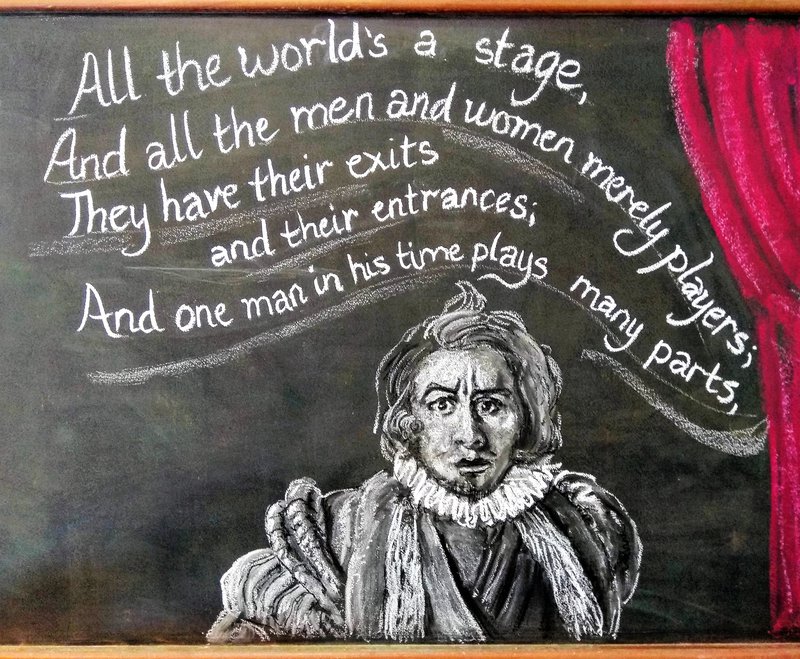 All the world's a stage,
And all the men and women merely players;
They have their exits
and their entrances;
And one man in his time plays many parts,